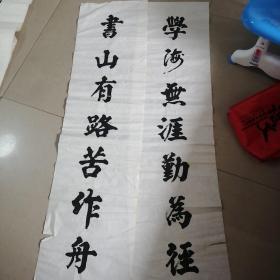 學海無涯勤為徑
書山有路苦作舟